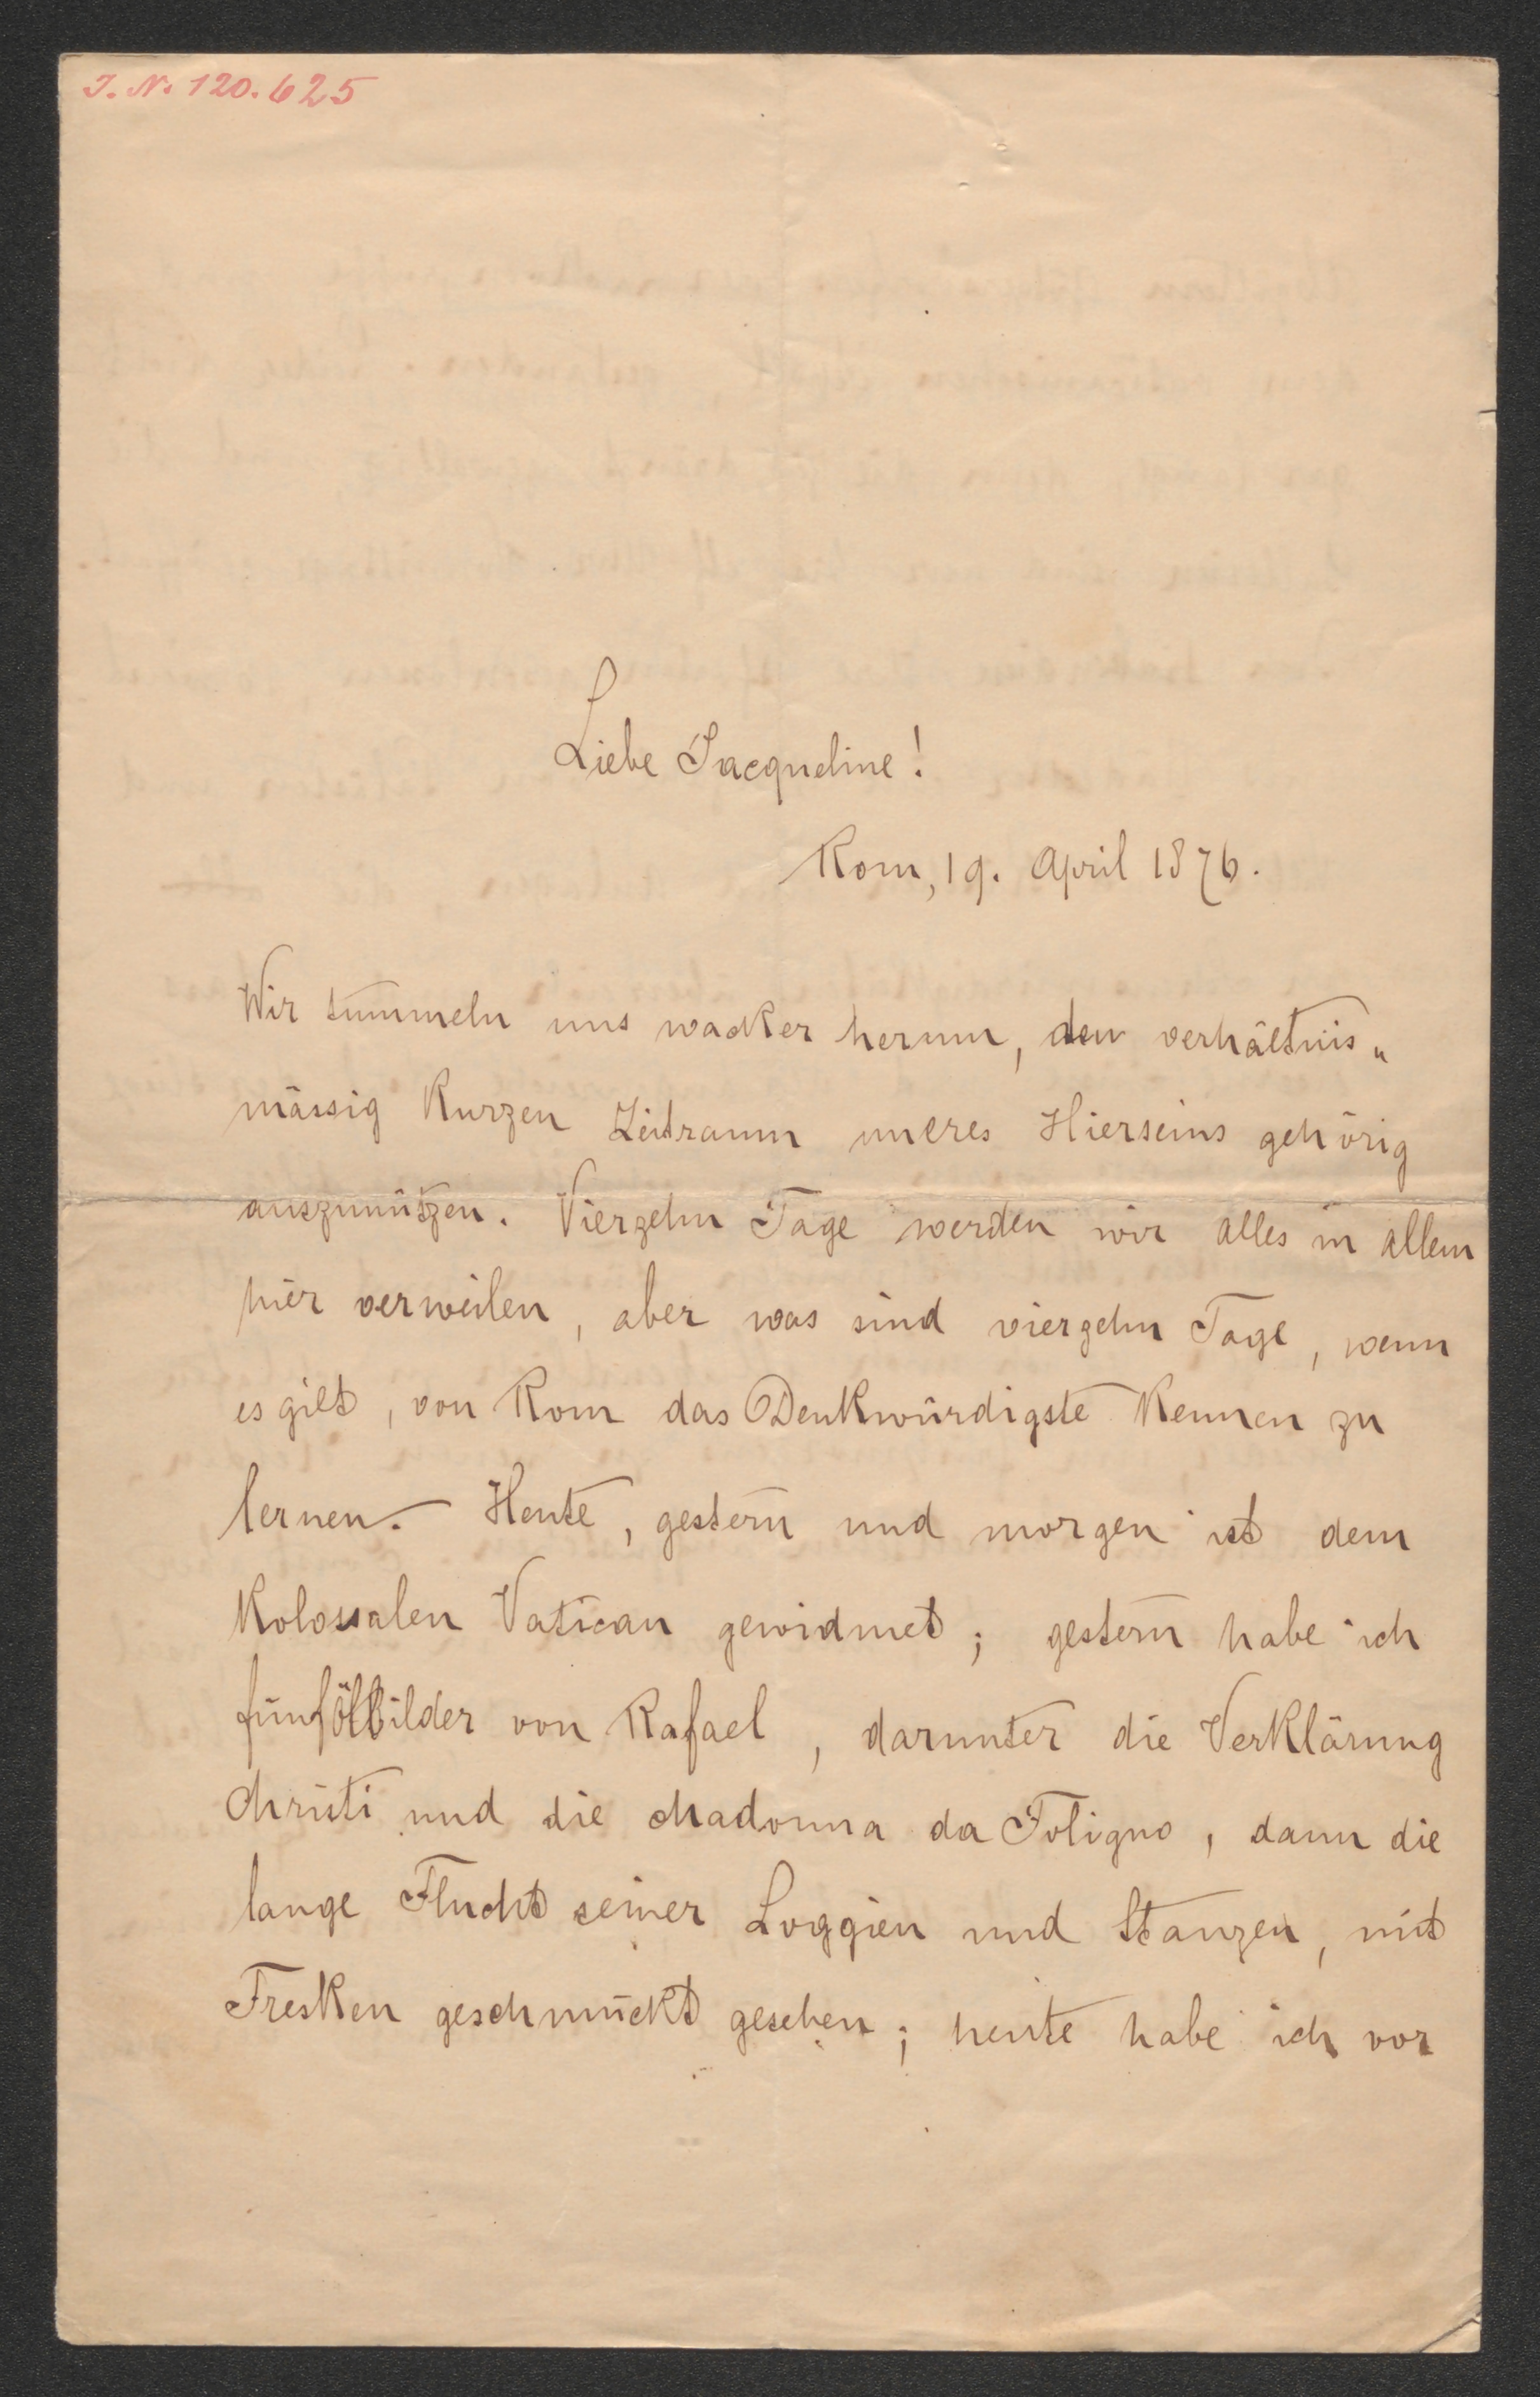 I. N. 120.625
Liebe Jacqueline!
Rom, 19. April 1876.
Wir tummeln uns wacker herum, den verhältnis„
mässig kurzen Zeitraum unseres Hierseins gehörig
auszunützen. Vierzehn Tage werden wir alles in allem
hier verweilen, aber was sind vierzehn Tage, wenn
es gilt, von Rom das Denkwürdigste kennen zu
lernen. – Heute, gestern und morgen ist dem
kolossalen Vatican gewidmet; gestern habe ich
fünf Ölbilder von Rafael, darunter die Verklärung
Christi und die Madonna da Foligno, dann die
lange Flucht seiner Loggien und Stanzen, mit
Fresken geschmückt gesehen; heute habe ich vor